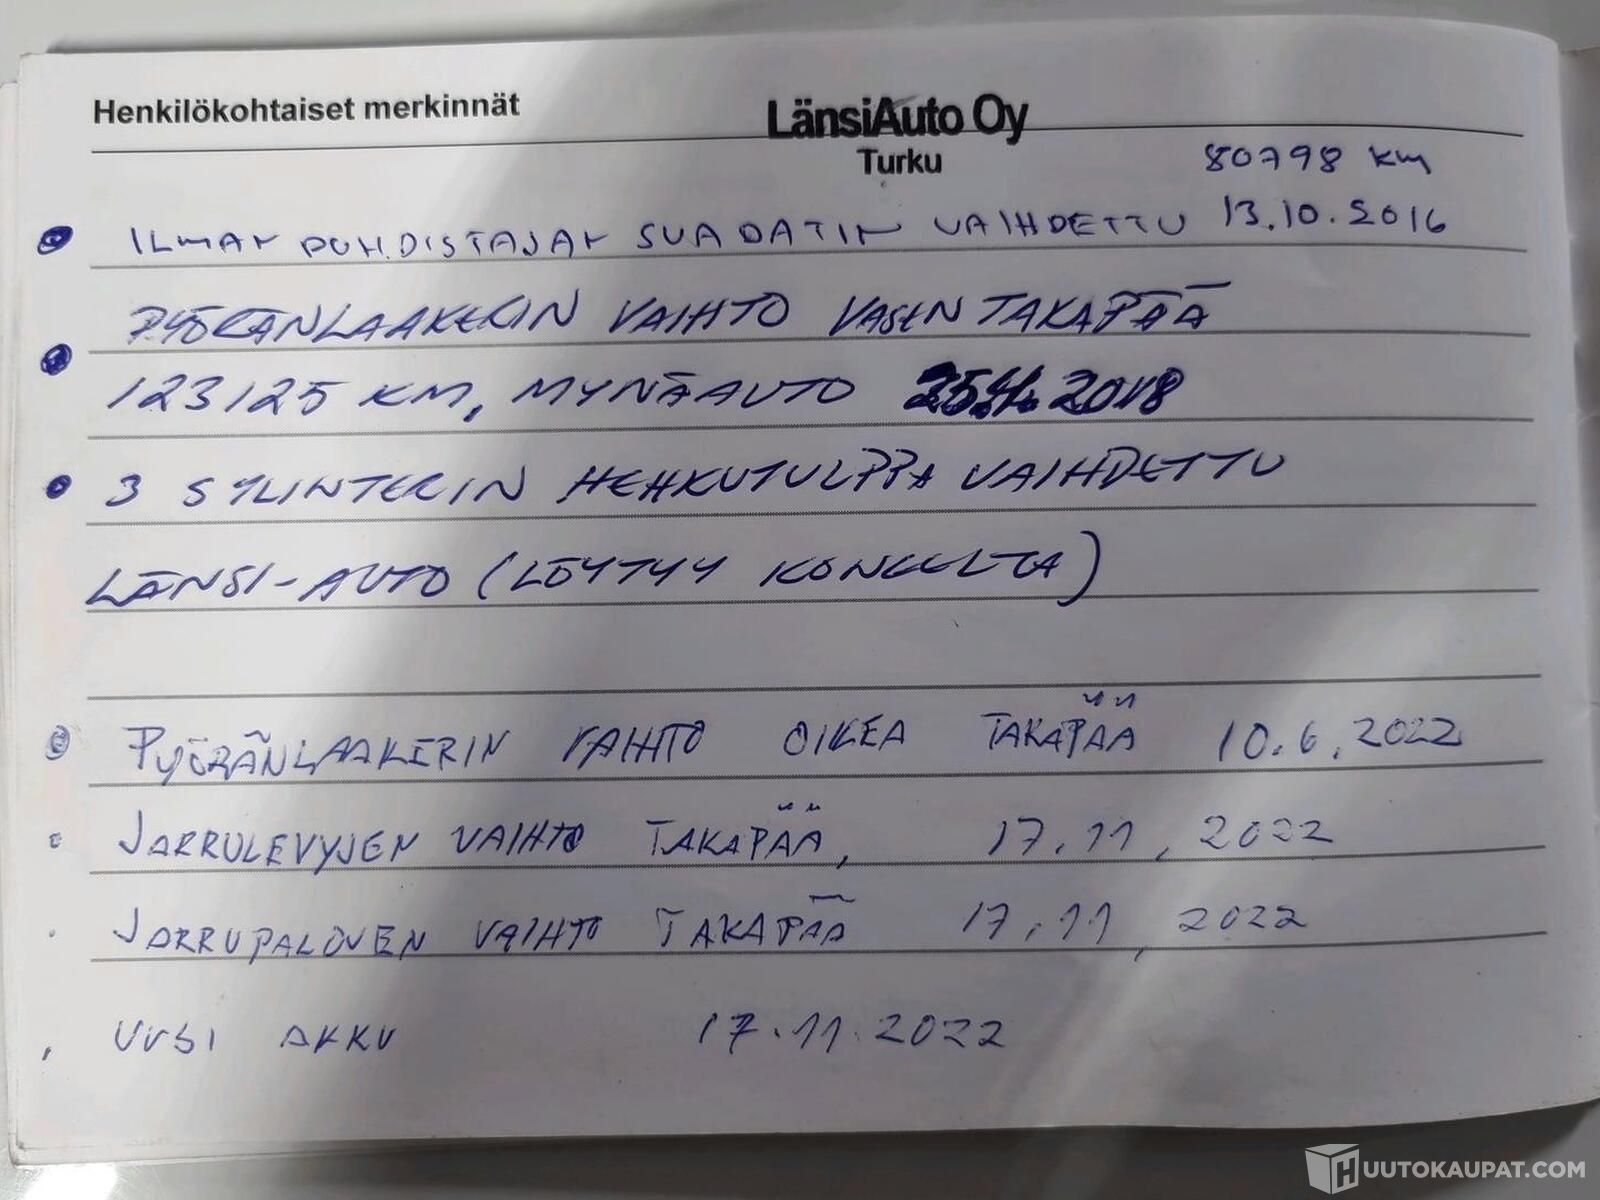 Henkilökohtaiset merkinnät
LänsiAuto Oy
Turku
80798 km
ILMAN PUHDISTAJAN SUADATIN VAIHDETTU 13.10.2016
PYÖRÄNLAAKERIN VAIHTO VASEN TAKAPÄÄ
123125 KM, MYNÄAUTO 2018
3 SYLINTERIN HEHKUTULPPA VAIHDETTU
LÄNSI-AUTO (LÖYTYY KONEELTA)
PYÖRÄNLAAKERIN VAIHTO OIKEA TAKAPÄÄ 10.6.2022
JARRULEVYJEN VAIHTO TAKAPÄÄ, 17.11, 2022
JARRUPALOJEN VAIHTO TAKAPÄÄ 17.11, 2022
UUSI AKKU 17.11.2022
HUUTOKAUPAT.COM